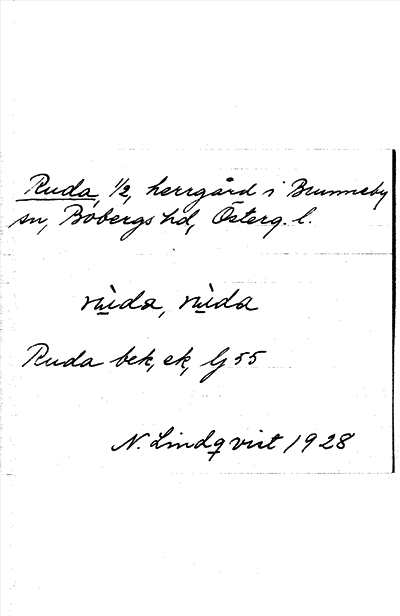 Ruda, 1/2, herrgård i Brunneby
sn, Bobergs hd, Österg. l.
rùda, rùda
Ruda bek, ek, Lj 55
N. Lindqvist 1928